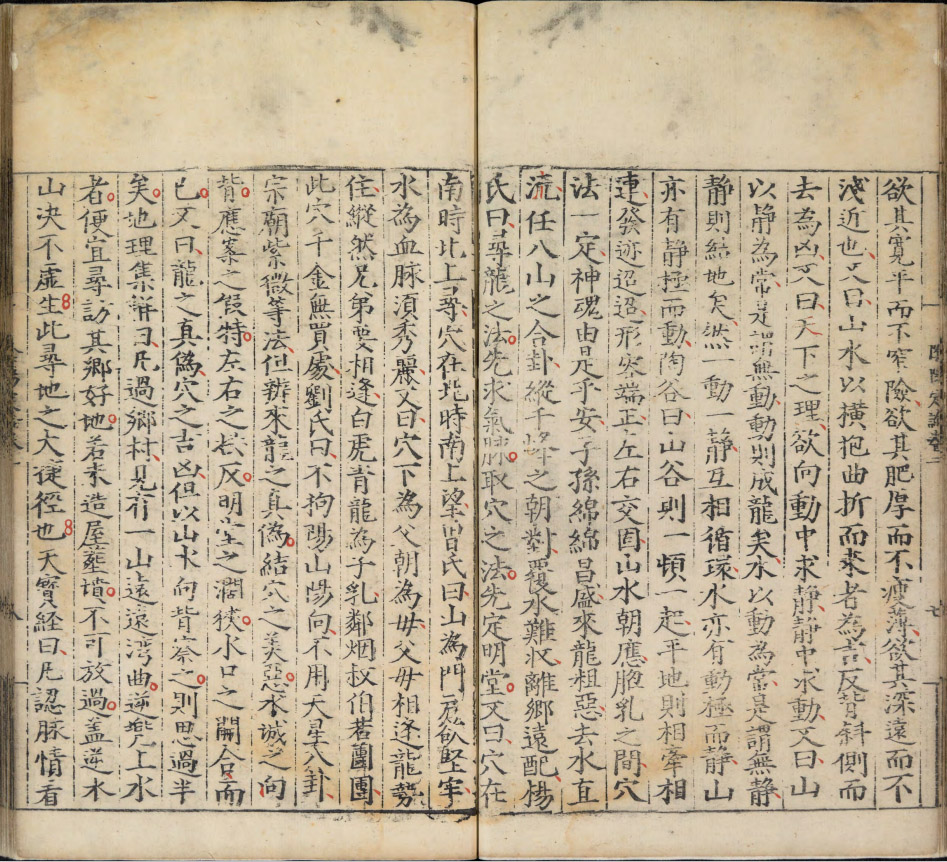 欲其寬平而不窄險欲其肥厚而不瘦薄欲其深遠而不
淺近也又曰山水以橫抱曲折而來者為吉反背斜側而
去為凶又曰天下之理欲向動中求静静中求動又曰山
以静為常是謂無動動則成龍矣水以動為常是謂無静
静則結地矣然一動一静互相循環水亦有動極而静山
亦有静極而動陶谷曰山谷則一頓一起平地則相牽相
連發迹迢迢形峦端正左右交固山水朝應腋乳之間穴
法一定神魂由是乎安子孫綿綿昌盛來龍粗惡去水直
流任八山之合卦縱千峰之朝對覆水難収離鄉遠配楊
氏曰尋龍之法先求氣脉取穴之法先定明堂又曰穴在
南時北上尋穴在北時南上望曾氏曰山為門户欲堅牢
水為血脉須秀麗又曰穴下為父朝為母父母相逢龍勢
住縱然兄弟要相逢白虎青龍為子乳鄰烟叔伯若團團
此穴千金無買處劉氏曰不拘陽山陽向不用天星八卦
宗廟紫微等法但辨來龍之真偽結穴之美惡水城之向
背應案之假特左右之拱反明堂之濶狹水口之開合而
已又曰龍之真偽穴之吉凶但以山水向背察之則思過半
矣地理集觧曰凡過鄉村見有一山遠遠湾曲逆兜上水
者便宜尋訪其鄉好地若未造屋塟墳不可放過盖逆水
山决不虛生此尋地之大徑也天寳経曰凡認脉情看
七